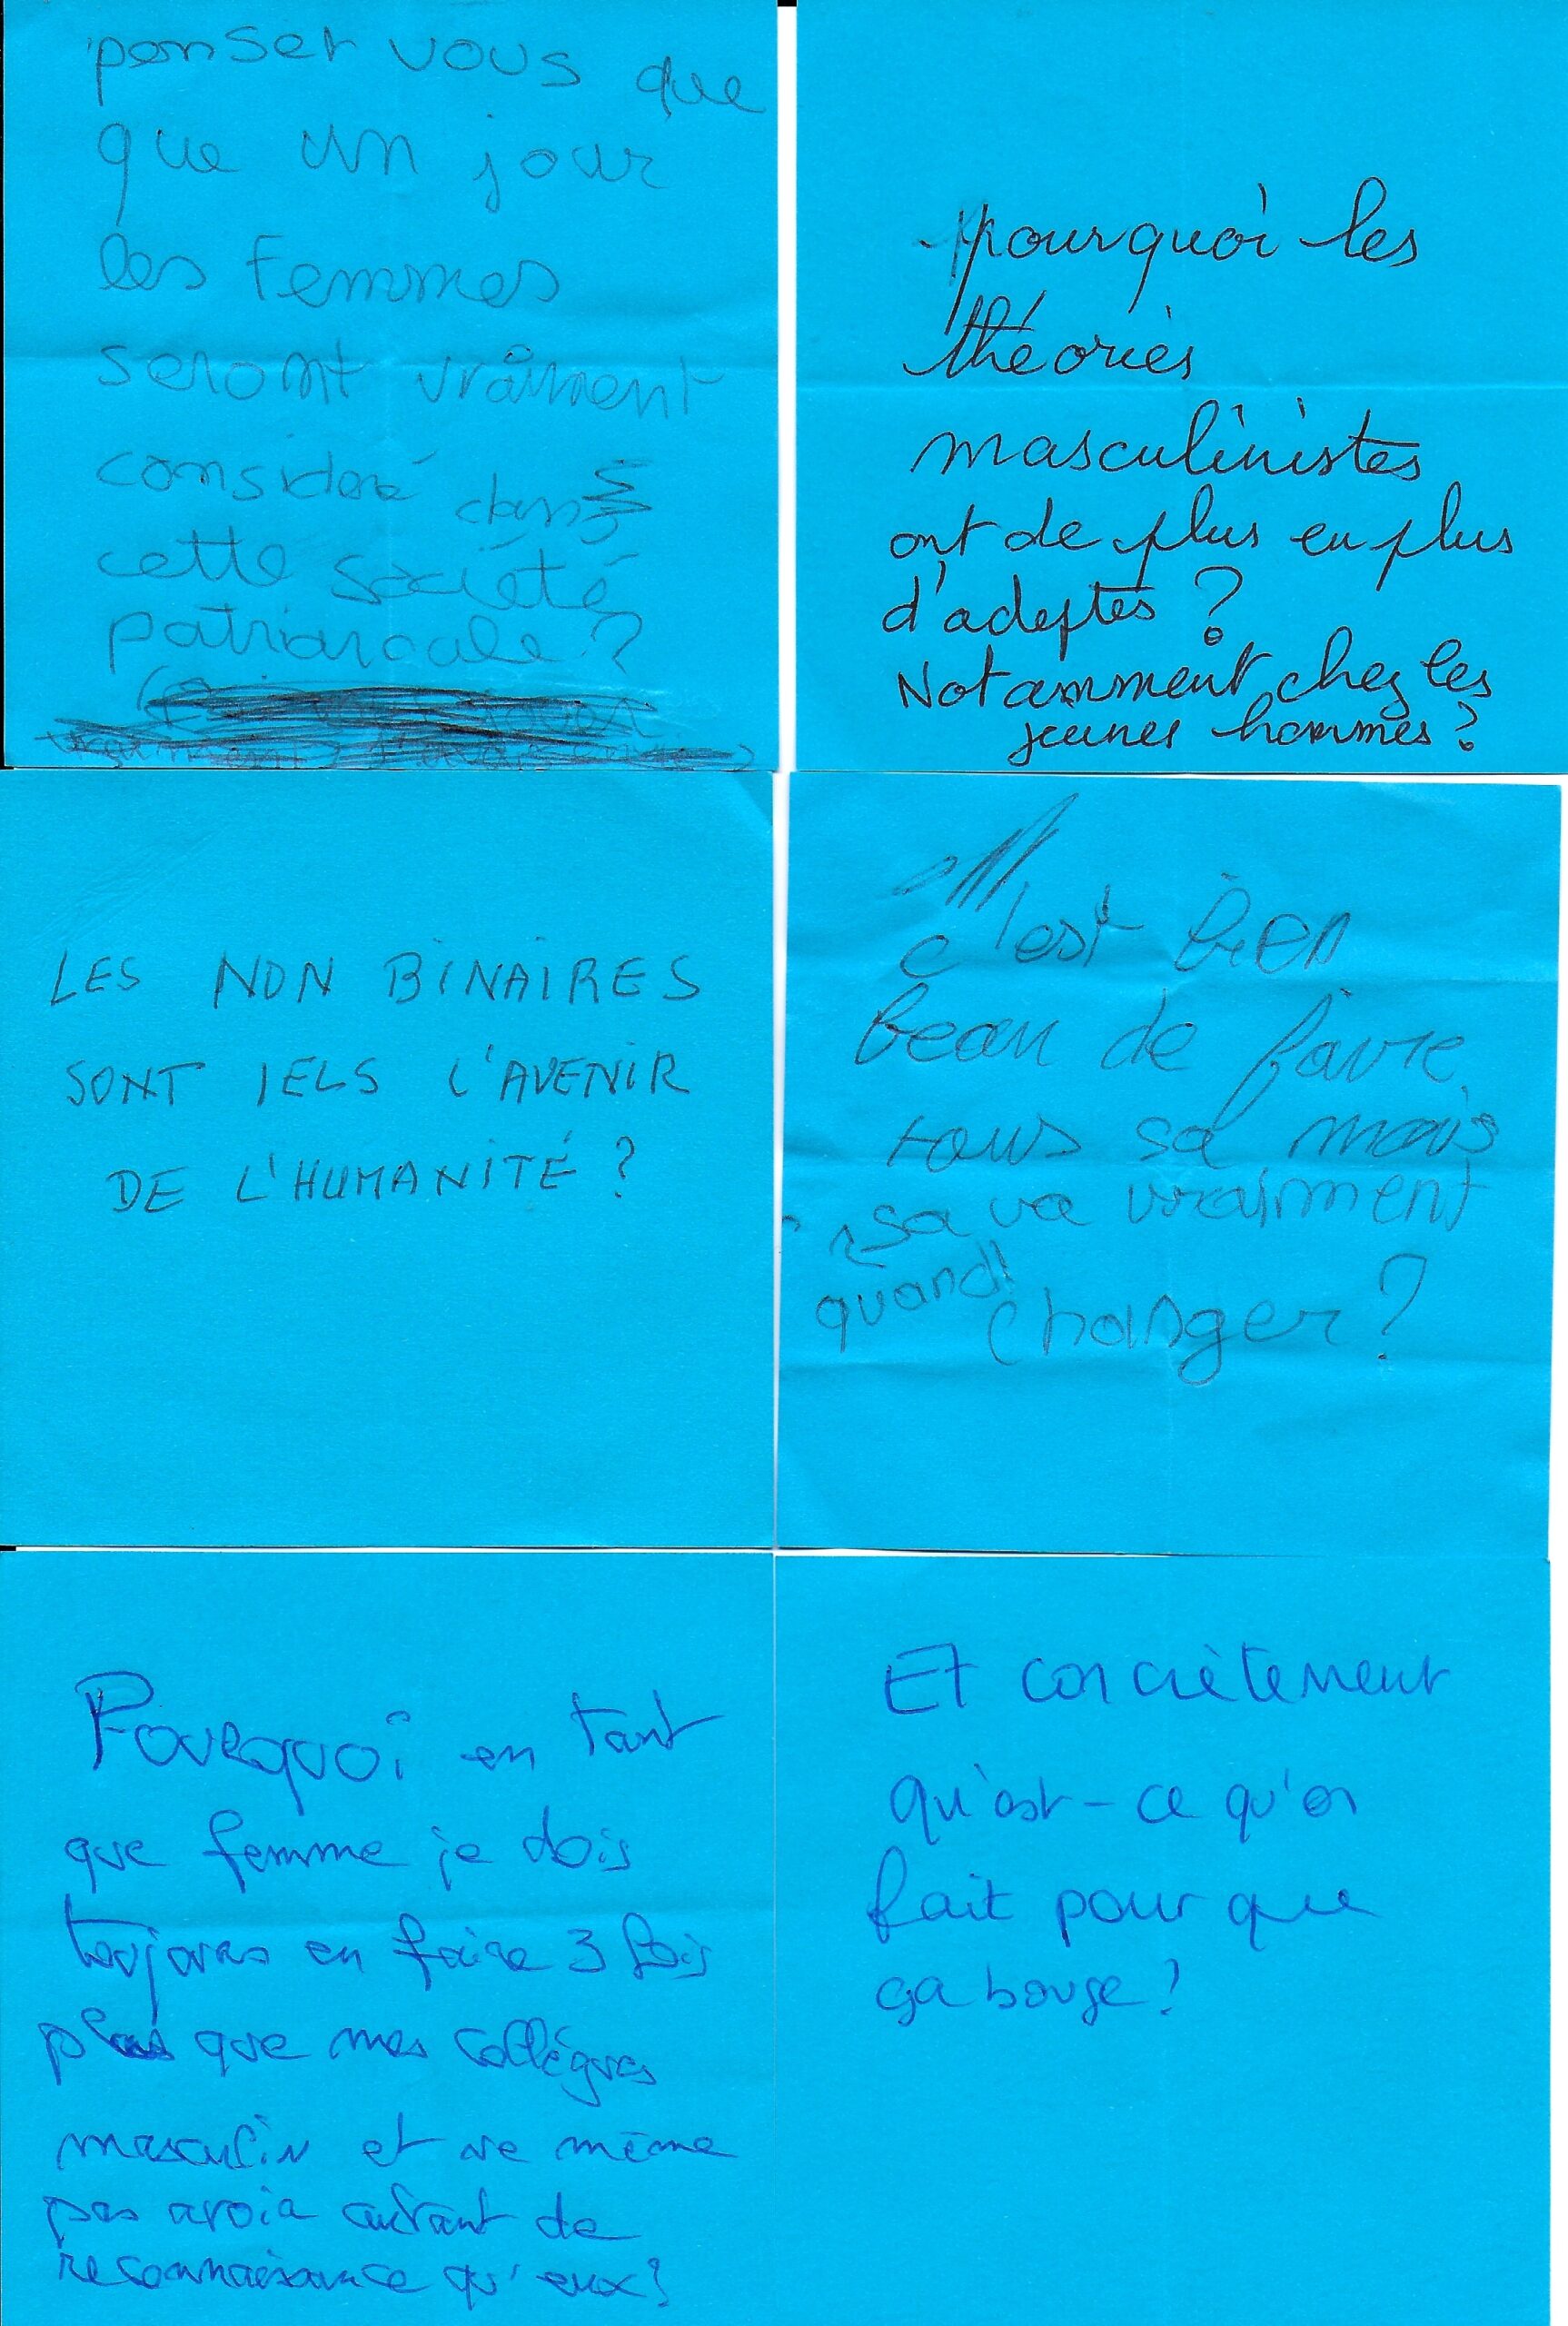 penser vous que
que un jour
les femmes
seront vraiment
consideré dans
cette société
patriarcale ?
pourquoi les
théories
masculinistes
ont de plus en plus
d'adeptes ?
Notamment chez les
jeunes hommes ?
LES NON BINAIRES
SONT IELS L'AVENIR
DE L'HUMANITÉ ?
c'est bien
beau de faire
tous sa mais
sa va vraiment
quand
changer ?
Pourquoi en tant
que femme je dois
toujours en faire 3 fois
plus que mes collègues
masculin et ne même
pas avoir autant de
reconnaissance qu'eux ?
Et concrètement
qu'est-ce qu'on
fait pour que
ça bouge ?